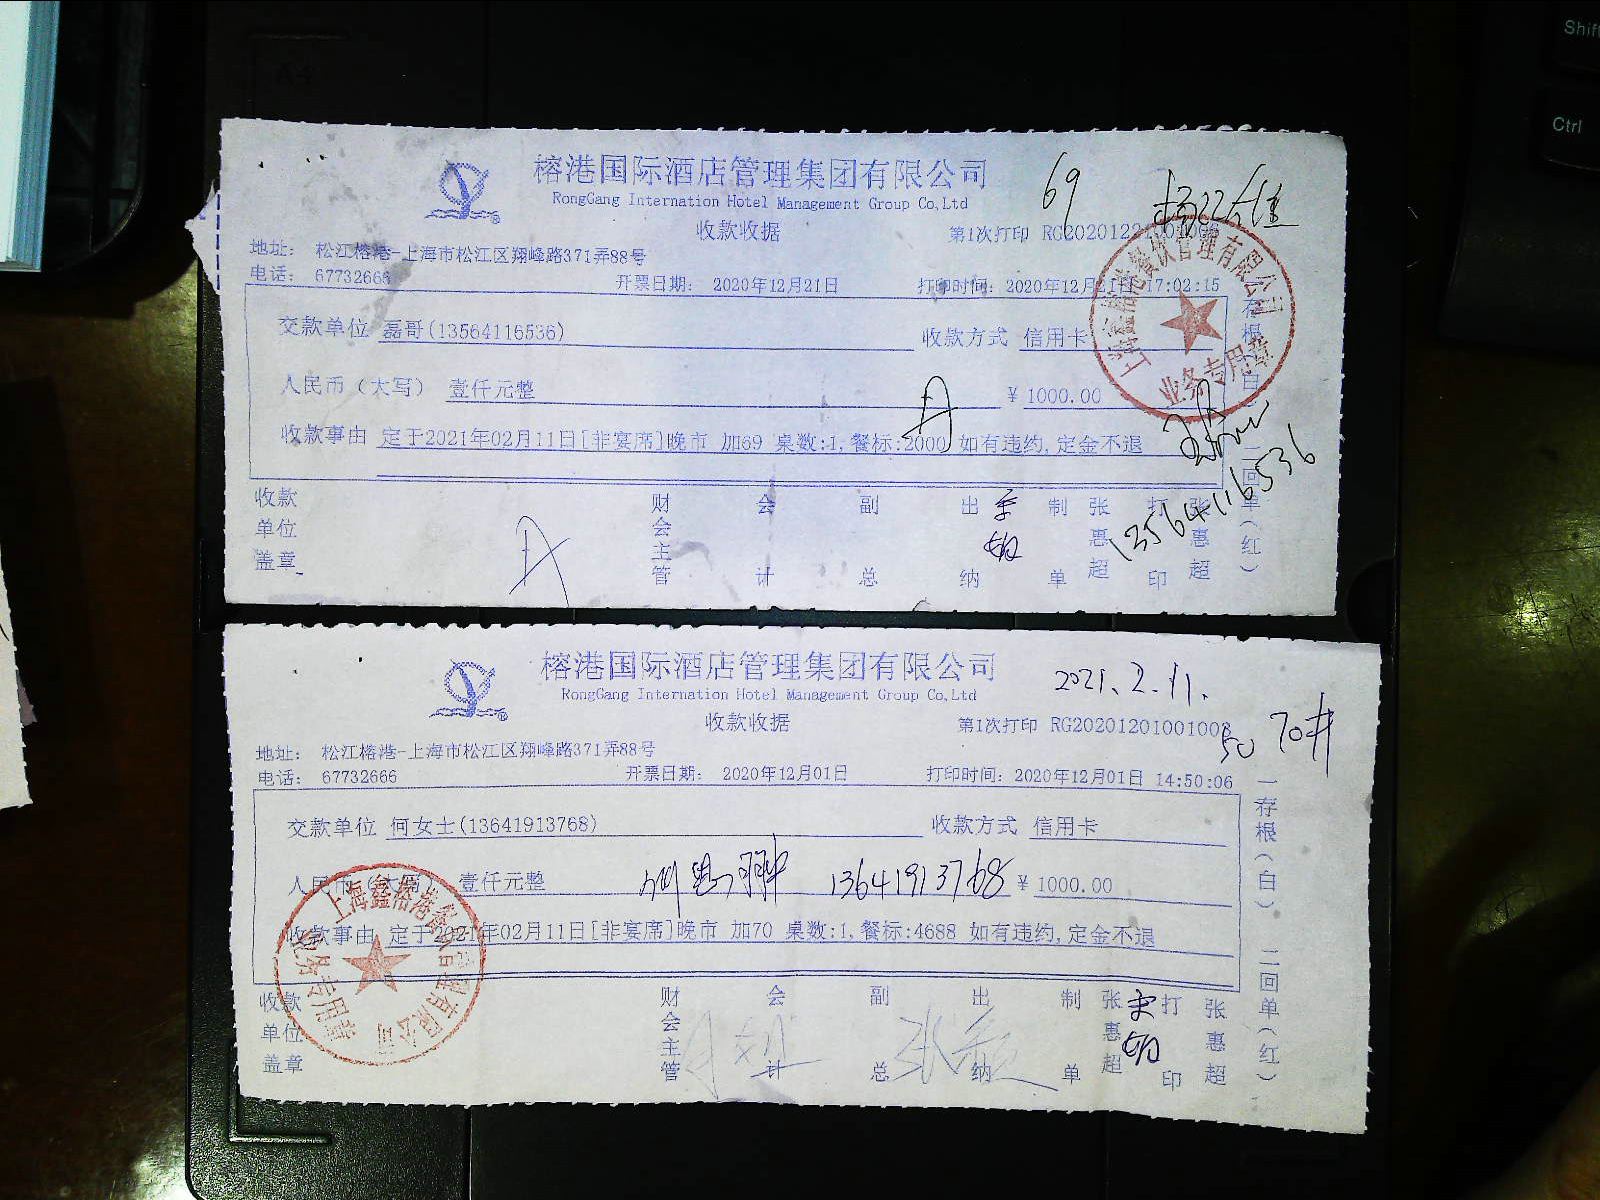 Shift
Ctrl
A4
榕港国际酒店管理集团有限公司
RongGang Internation Hotel Management Group Co,Ltd
69
收款收据
第1次打印
地址： 松江榕港-上海市松江区翔峰路371弄88号
电话： 67732666
开票日期： 2020年12月21日
打印时间：2020年12月21日 17:02:15
交款单位 磊哥(13564116536)
收款方式 信用卡
人民币（大写） 壹仟元整
￥ 1000.00
收款事由 定于2021年02月11日[非宴席]晚市 加69 桌数:1,餐标:2000 如有违约,定金不退
13564116536
收款单位盖章
财会主管
会计
副总
出纳
制单
张惠超
打印
张惠超
一存根(白) 二回单(红)
业务专用章
榕港国际酒店管理集团有限公司
RongGang Internation Hotel Management Group Co,Ltd
2021.2.11.
收款收据
第1次打印 RG20201201001008
50 70#
地址： 松江榕港-上海市松江区翔峰路371弄88号
电话： 67732666
开票日期： 2020年12月01日
打印时间：2020年12月01日 14:50:06
交款单位 何女士(13641913768)
收款方式 信用卡
人民币（大写） 壹仟元整
13641913768
￥ 1000.00
收款事由 定于2021年02月11日[非宴席]晚市 加70 桌数:1,餐标:4688 如有违约,定金不退
收款单位盖章
财会主管
会计
副总
出纳
制单
张惠超
打印
张惠超
一存根(白) 二回单(红)
上海鑫榕港餐饮管理有限公司
业务专用章